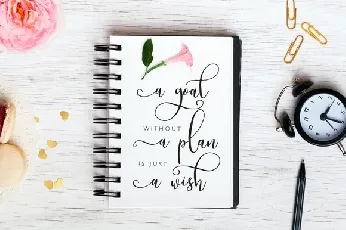 a goal
WITHOUT
a plan
IS JUST
a wish